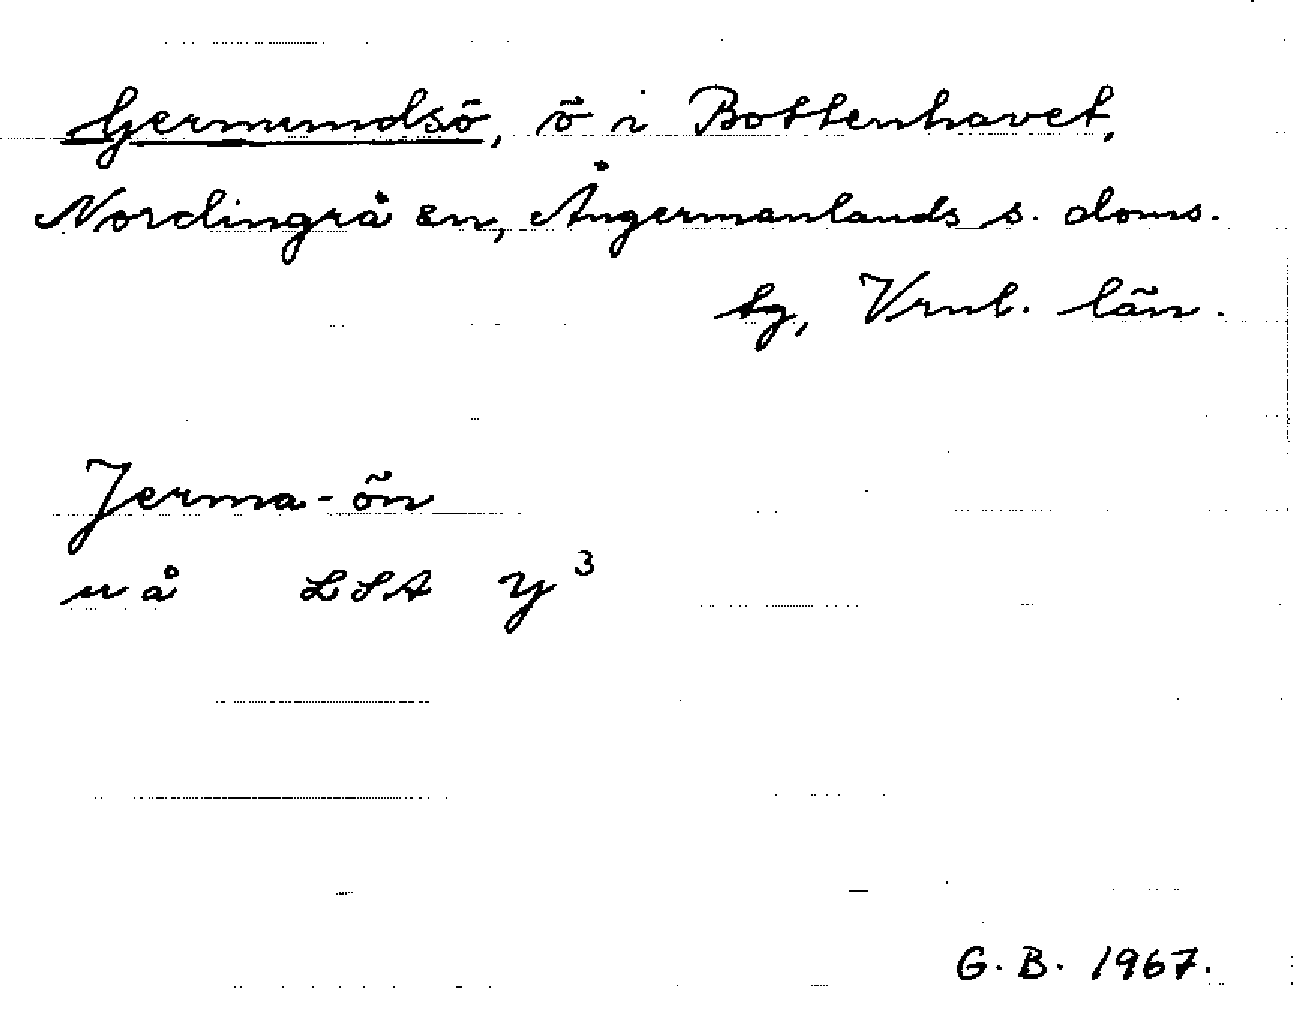 Germundsö, ö i Bottenhavet,
Nordingrå sn, Ångermanlands s. doms.
sg, Vrnl. län.
Jerma-ön
uå LSA Y³
G. B. 1967.